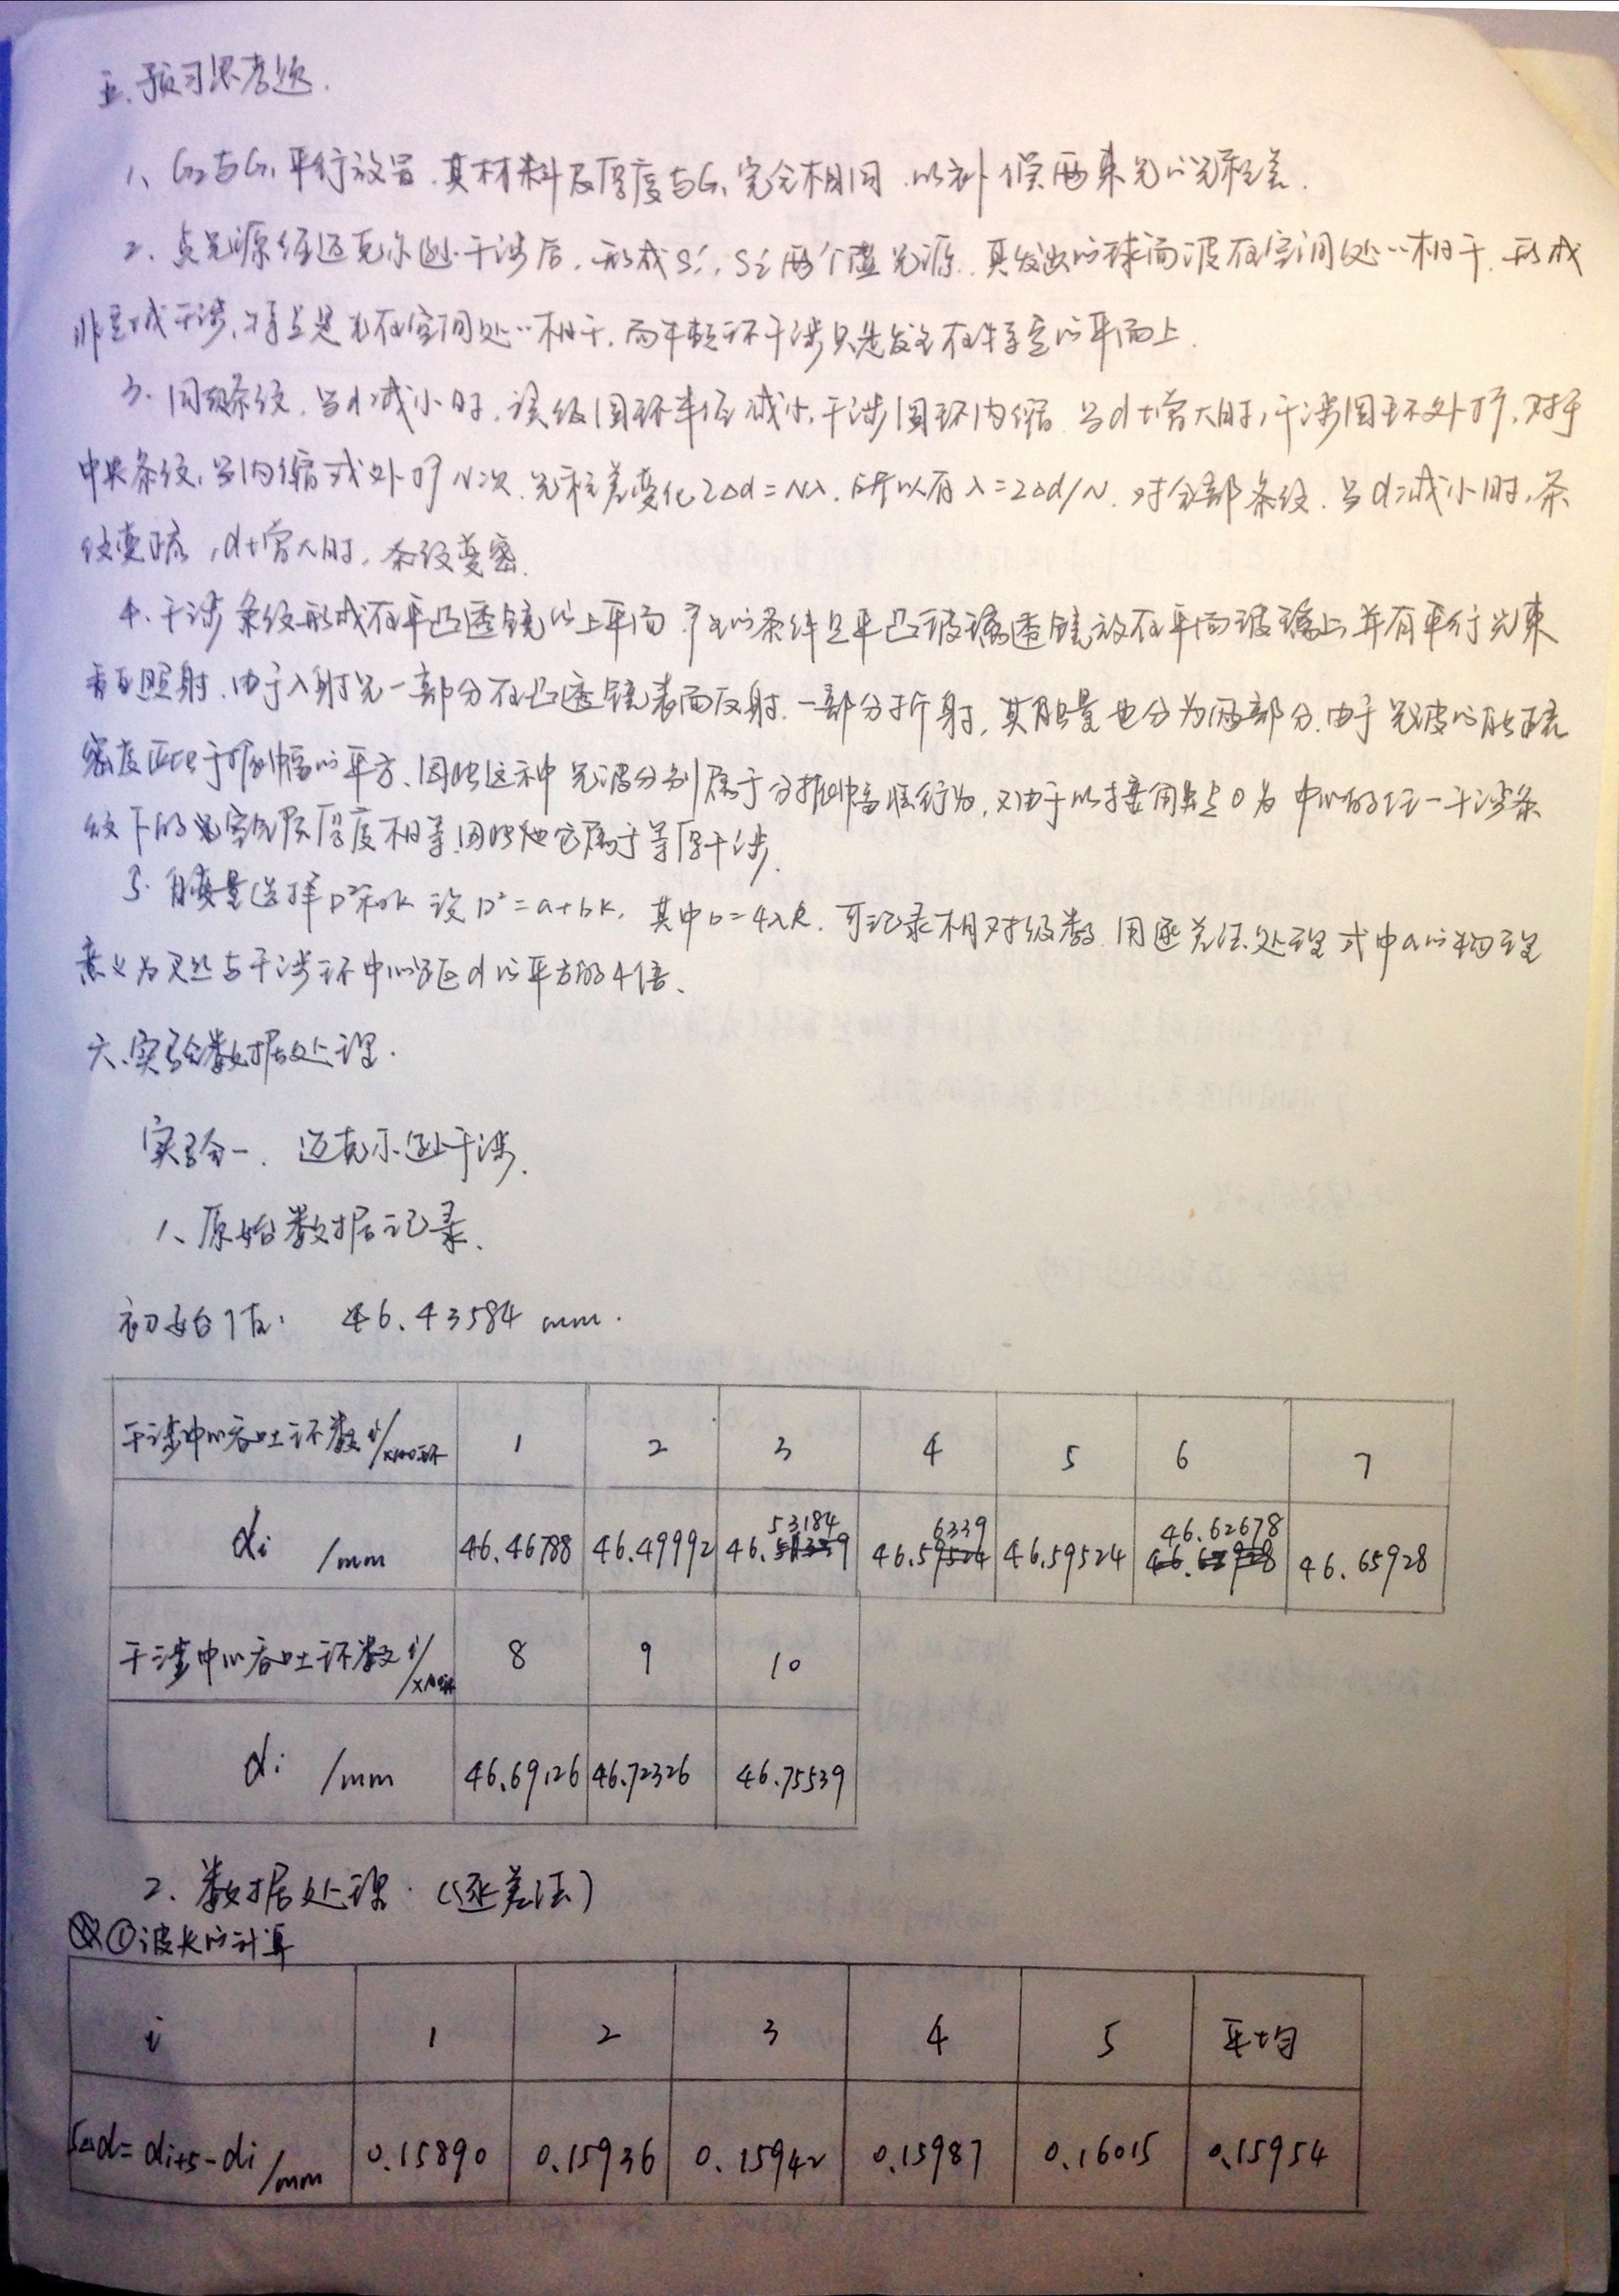 五、预习思考题.
1、G₂与G₁平行放置.其材料及厚度与G₁完全相同.以补偿两束光的光程差.
2、点光源经迈克尔逊干涉后,形成S₁′,S₂′两个虚光源.其发出的球面波在空间处处相干.形成
非定域干涉,特点是光在空间处处相干.而牛顿环干涉只是发生在特定的平面上.
3.同级条纹.当d减小时,该级圆环半径减小,干涉圆环内缩.当d增大时,干涉圆环外扩,对于
中央条纹,当内缩或外扩N次.光程差变化2Δd=Nλ.所以有λ=2Δd/N.对全部条纹.当d减小时,条
纹变疏,d增大时,条纹变密.
4.干涉条纹形成在平凸透镜的上平面.产生的条件是平凸玻璃透镜放在平面玻璃上并有平行光束
垂直照射.由于入射光一部分在凸透镜表面反射.一部分折射,其能量也分为两部分.由于光波的能流
密度正比于振幅的平方、因此这种光波分割属于分振幅性行为,又由于以接触点O为中心的任一干涉条
纹下的空气层厚度相等,因此它属于等厚干涉.
5.自变量选择D²和K 设D²=a+bK,其中b=4λR.可记录相对级数.用逐差法处理式中a的物理
意义为叉丝与干涉环中心距d的平方的4倍、
六、实验数据处理.
实验一.迈克尔逊干涉.
1、原始数据记录、
初始值: 46.43584 mm.
干涉中心吞吐环数i/×100环 1 2 3 4 5 6 7
di /mm 46.46788 46.49992 46.53184 46.56339 46.59524 46.62678 46.65928
干涉中心吞吐环数i/×100环 8 9 10
di /mm 46.69126 46.72326 46.75539
2、数据处理.(逐差法)
①波长的计算
i 1 2 3 4 5 平均
5Δd=di+5-di/mm 0.15890 0.15936 0.15942 0.15987 0.16015 0.15954